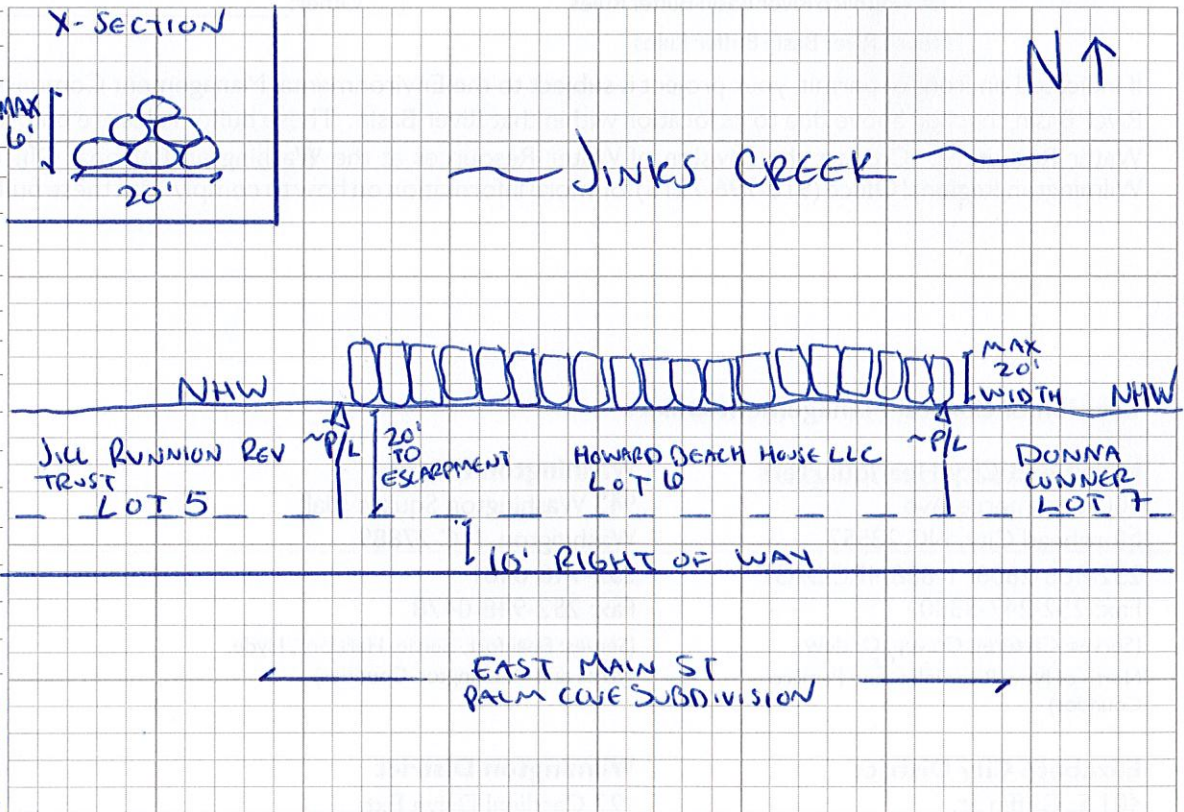 X-SECTION
MAX
6'
20'
N
JINKS CREEK
MAX
20'
WIDTH
NHW
NHW
~P/L
20'
TO
ESCARPMENT
~P/L
JILL RUNNION REV
TRUST
LOT 5
HOWARD BEACH HOUSE LLC
LOT 6
DONNA
CONNER
LOT 7
10' RIGHT OF WAY
EAST MAIN ST
PALM COVE SUBDIVISION